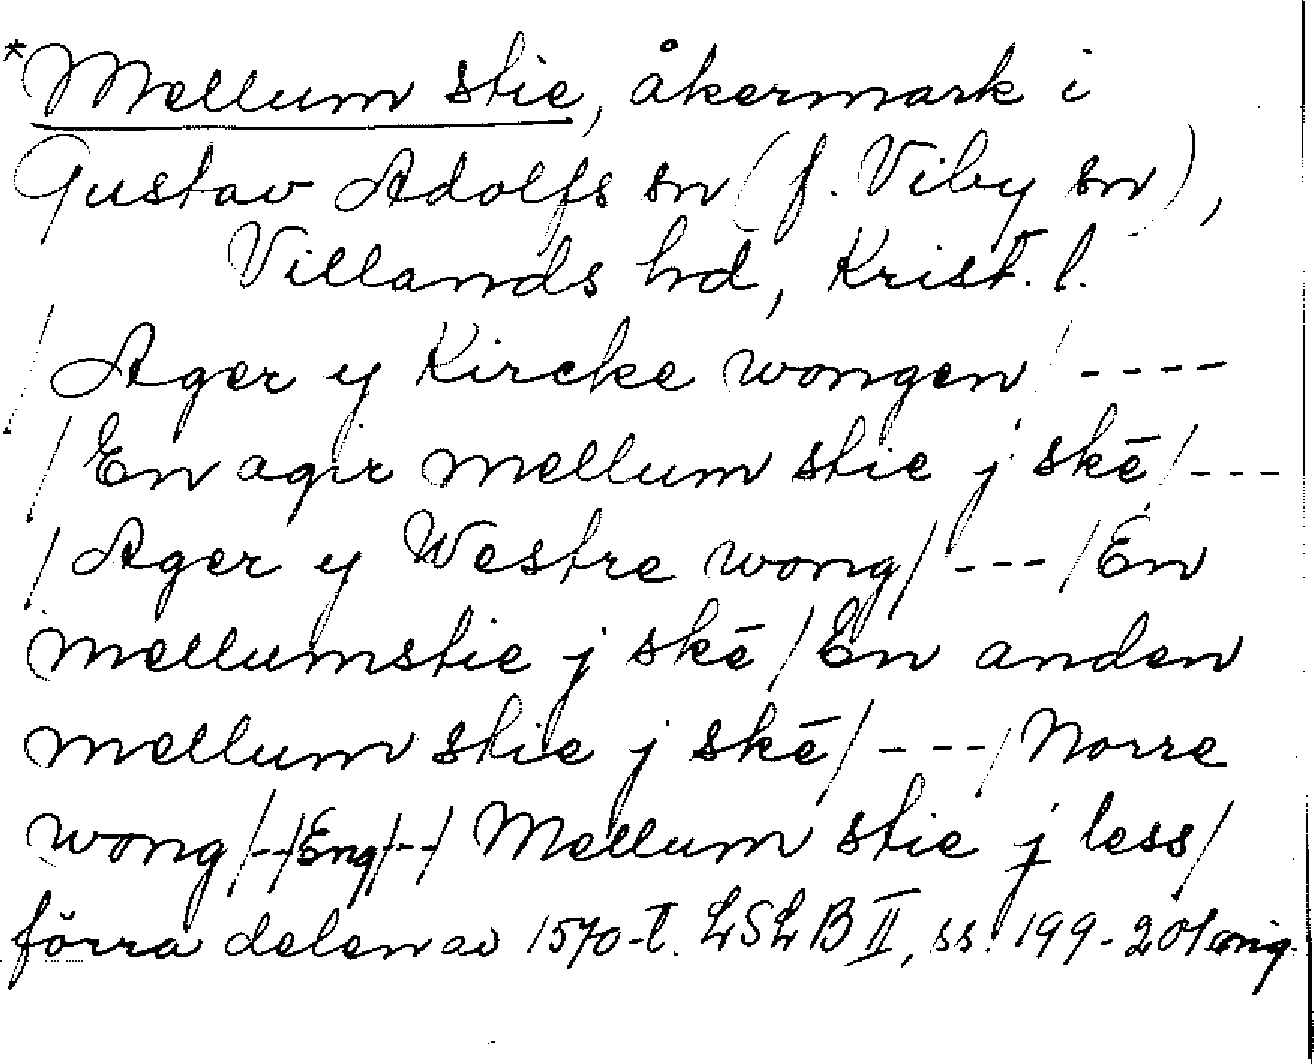 *Mellum stie, åkermark i
Gustav Adolfs sn (f. Viby sn),
Villands hd, Krist. l.
/Ager y Kircke wongen/ ----
/En agir mellum stie j skē/---
/Ager y Westre wong/---/En
mellumstie j skē/En anden
mellum stie j skē/---/Norre
wong/--/Eng/--/Mellum stie j less/
förra delen av 1570-t. LSLB II, ss. 199-201 orig.